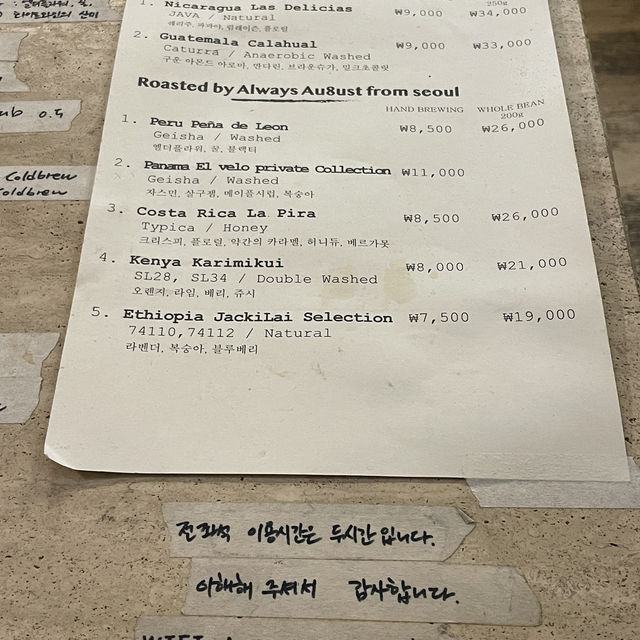 250g
1. Nicaragua Las Delicias ₩9,000 ₩34,000
JAVA / Natural
2. Guatemala Calahual ₩9,000 ₩33,000
Caturra / Anaerobic Washed
구운 아몬드 아로마, 만다린, 브라운슈가, 밀크초콜릿
Roasted by Always Au8ust from seoul
HAND BREWING WHOLE BEAN
200g
1. Peru Peña de Leon ₩8,500 ₩26,000
Geisha / Washed
엘더플라워, 꿀, 블랙티
2. Panama El velo private Collection ₩11,000
Geisha / Washed
자스민, 살구잼, 메이플시럽, 복숭아
3. Costa Rica La Pira ₩8,500 ₩26,000
Typica / Honey
크리스피, 플로럴, 약간의 카라멜, 허니듀, 베르가못
4. Kenya Karimikui ₩8,000 ₩21,000
SL28, SL34 / Double Washed
오렌지, 라임, 베리, 쥬시
5. Ethiopia JackiLai Selection ₩7,500 ₩19,000
74110,74112 / Natural
라벤더, 복숭아, 블루베리
0.5
Coldbrew
Coldbrew
전좌석 이용시간은 두시간입니다.
이해해 주셔서 감사합니다.